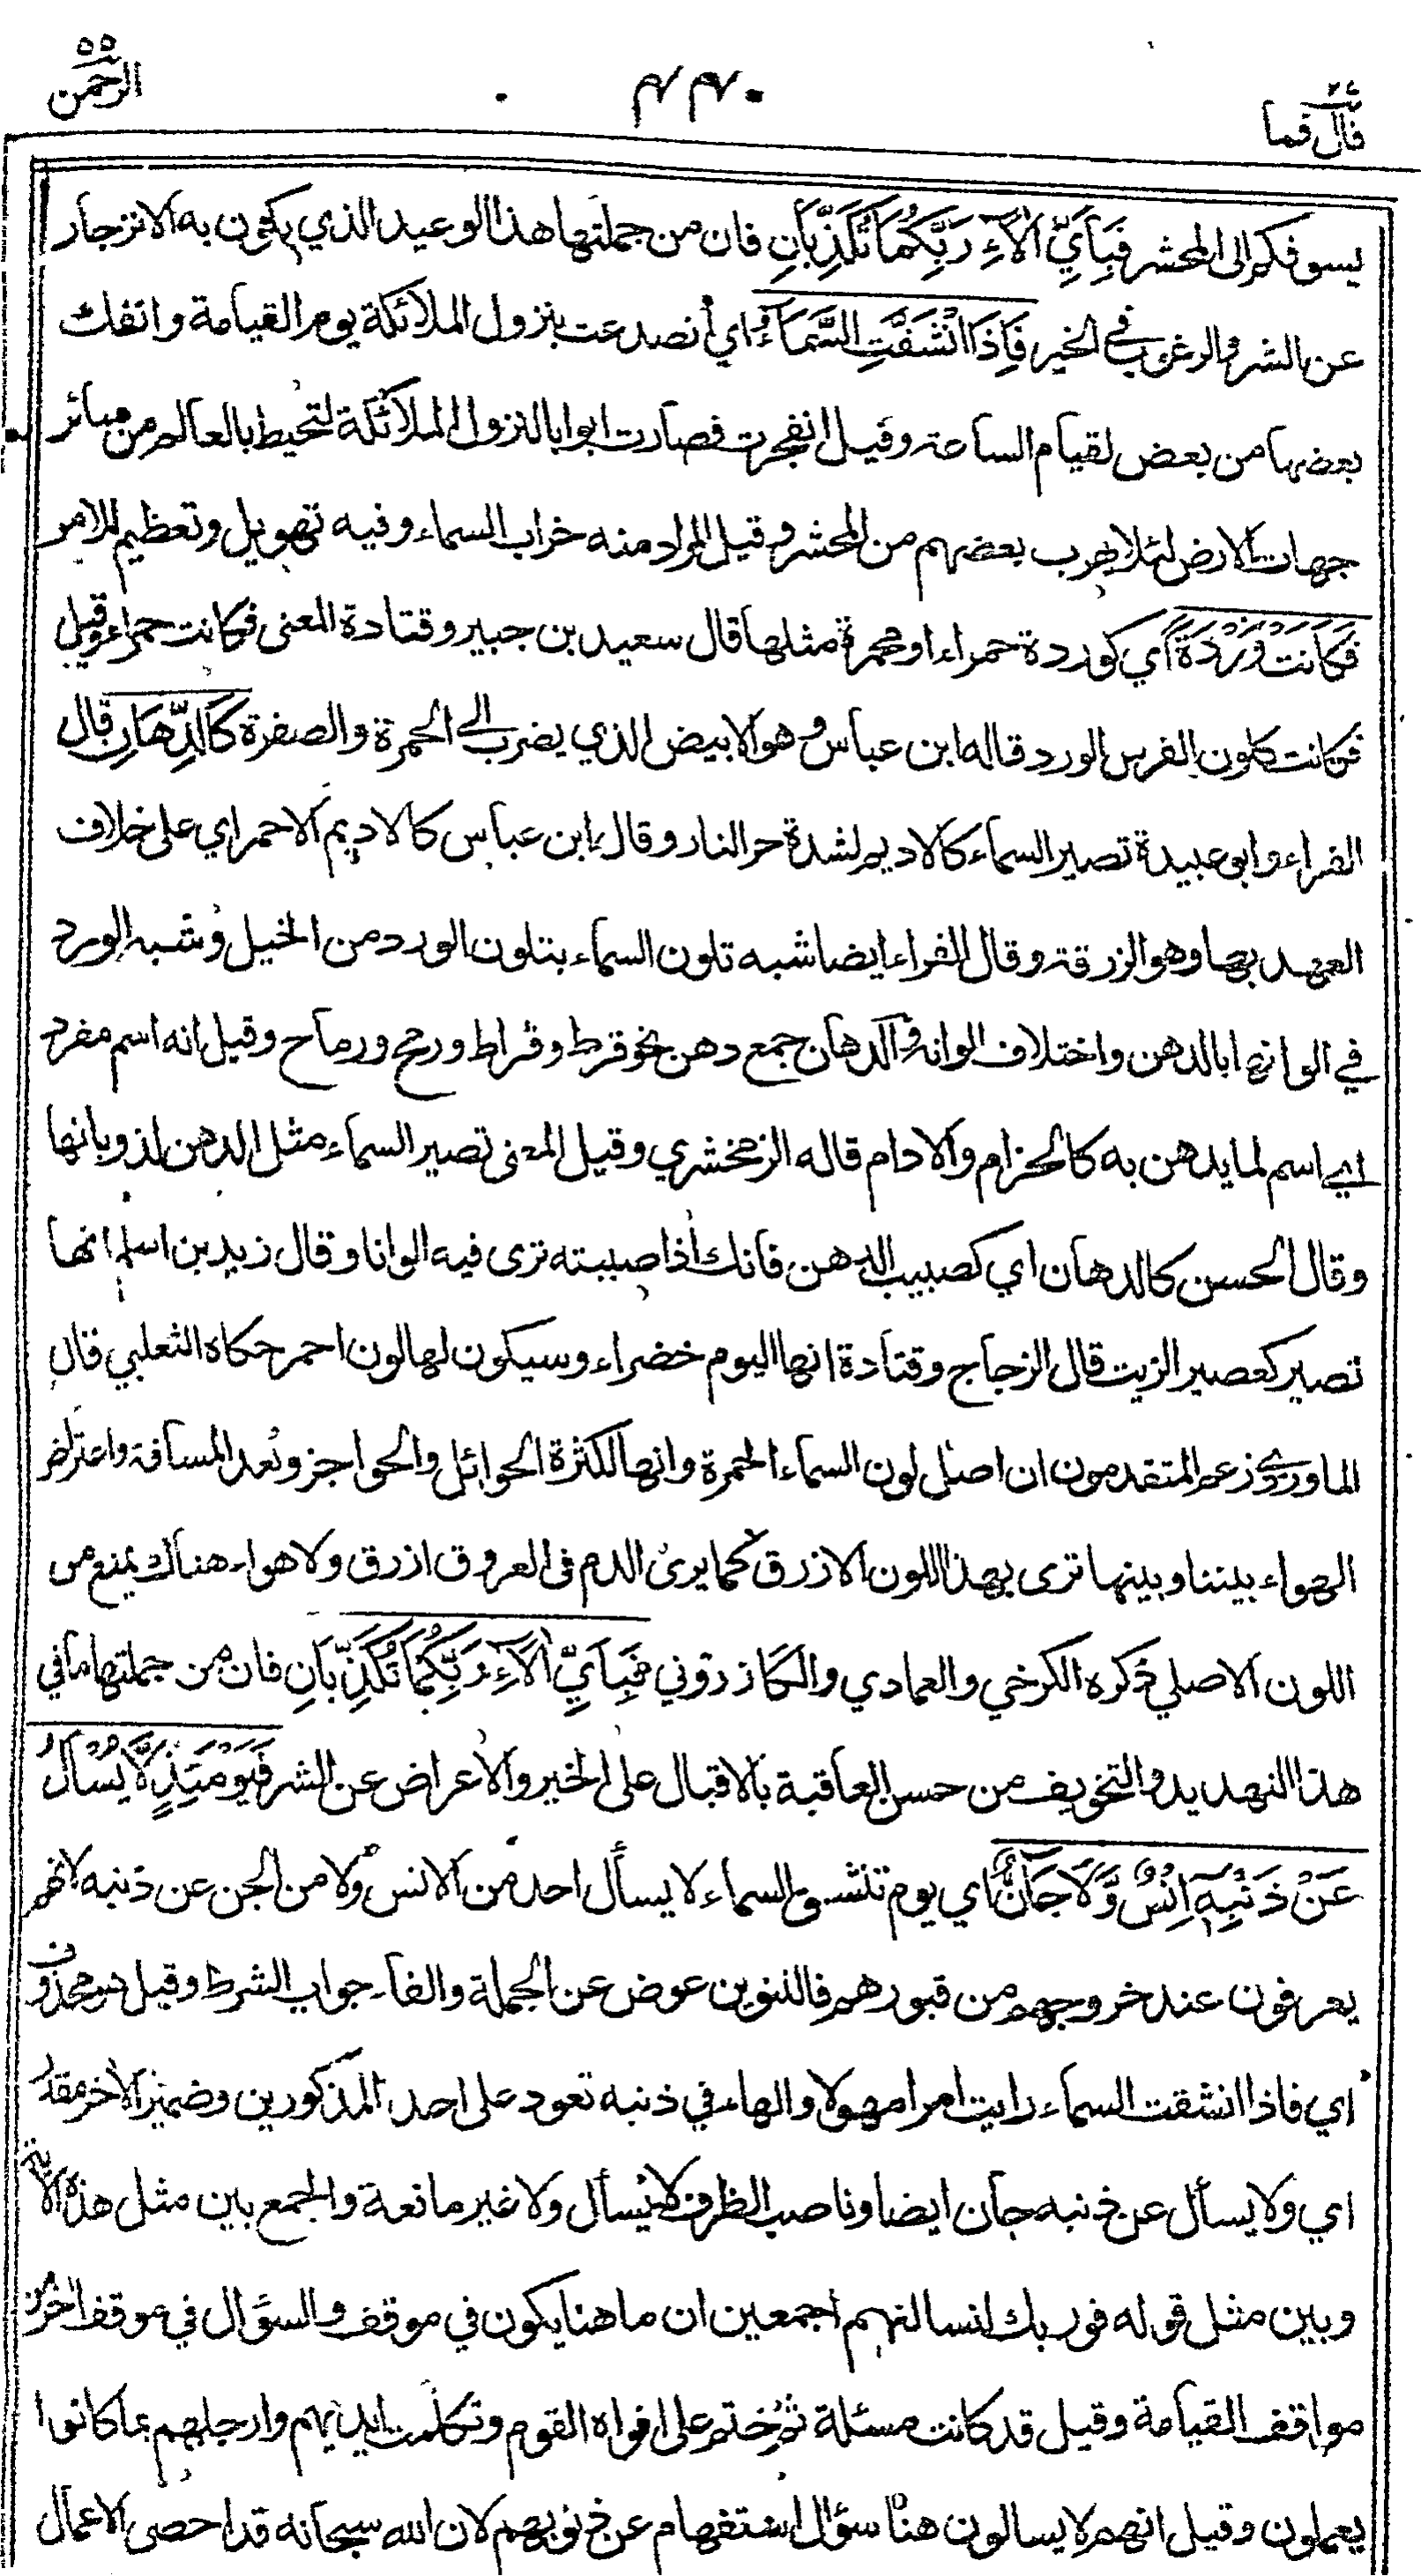 قال فما ٢٧
٤٤٠
الرحمن ٥٥
يسوقكم الى المحشر فَبِأَيِّ اٰلَآءِ رَبِّكُمَا تُكَذِّبَانِ فان من جملتها هذا الوعيد الذي يكون به الانزجار
عن الشر والرغوب في الخير فَإِذَا انْشَقَّتِ السَّمَآءُ اي انصدعت بنزول الملائكة يوم القيامة وانفك
بعضها من بعض لقيام الساعة وقيل انفجرت فصارت ابوابا لنزول الملائكة لتحيط بالعالم من سائر
جهات الارض لئلا يهرب بعضهم من المحشر وقيل المراد منه خراب السماء وفيه تهويل وتعظيم للامر
فَكَانَتْ وَرْدَةً اي كوردة حمراء او محمرة مثلها قال سعيد بن جبير وقتادة المعنى فكانت حمراء وقيل
فكانت كلون الفرس الورد قاله ابن عباس وهو الابيض الذي يضرب الى الحمرة والصفرة كَالدِّهَانِ قال
الفراء وابو عبيدة تصير السماء كالاديم لشدة حر النار وقال ابن عباس كالاديم الاحمر اي على خلاف
العهد بها وهو الزرقة وقال الفراء ايضا شبه تلون السماء بتلون الورد من الخيل وشبه الورد
في الوانها بالدهن واختلاف الوانه والدهان جمع دهن نحو قرط وقراط ورمح ورماح وقيل انه اسم مفرد
اي اسم لما يدهن به كالحزام والادام قاله الزمخشري وقيل المعنى تصير السماء مثل الدهن لذوبانها
وقال الحسن كالدهان اي كصبيب الدهن فانك اذا صببته ترى فيه الوانا وقال زيد بن اسلم انها
تصير كعصير الزيت قال الزجاج وقتادة انها اليوم خضراء وسيكون لها لون احمر حكاه الثعلبي قال
الماوردي وزعم المتقدمون ان اصل لون السماء الحمرة وانها لكثرة الحوائل والحواجز وبعد المسافة واعتراض
الهواء بيننا وبينها ترى بهذا اللون الازرق كما يرى الدم في العروق ازرق ولا هواء هناك يمنع من
اللون الاصلي ذكره الكرخي والعمادي والكازروني فَبِأَيِّ اٰلَآءِ رَبِّكُمَا تُكَذِّبَانِ فان من جملتها ما في
هذا التهديد والتخويف من حسن العاقبة بالاقبال على الخير والاعراض عن الشر فَيَوْمَئِذٍ لَّا يُسْأَلُ
عَنْ ذَنْبِهٖٓ اِنْسٌ وَّلَا جَآنٌّ اي يوم تنشق السماء لا يسأل احد من الانس ولا من الجن عن ذنبه لانهم
يعرفون عند خروجهم من قبورهم فالتنوين عوض عن الجملة والفاء جواب الشرط وقيل هو محذوف
اي فاذا انشقت السماء رايت امرا مهولا والهاء في ذنبه تعود على احد المذكورين وضمير الاخر مقدر
اي ولا يسأل عن ذنبه جان ايضا وناصب الظرف لا يسأل ولا غير مانعة والجمع بين مثل هذه الاية
وبين مثل قوله فوربك لنسالنهم اجمعين ان ما هنا يكون في موقف والسؤال في موقف اخر من
مواقف القيامة وقيل قد كانت مسئلة ثم ختم على افواه القوم وتكلمت ايديهم وارجلهم بما كانوا
يعملون وقيل انهم لا يسالون هنا سؤال استفهام عن ذنوبهم لان الله سبحانه قد احصى الاعمال